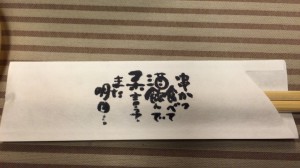 串かつ
食べて
酒飲んで
また
明日…